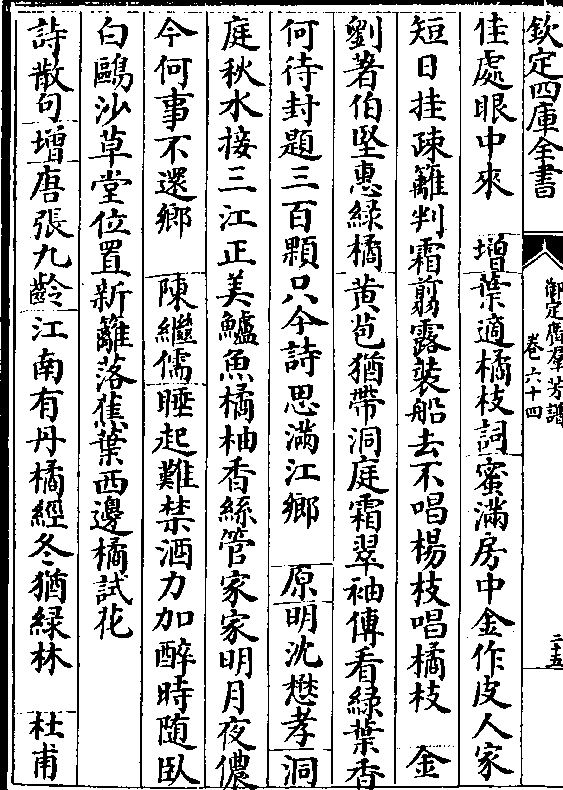 欽定四庫全書
御定廣羣芳譜
卷六十四
二十五
佳處眼中來　增葉適橘枝詞蜜滿房中金作皮人家
短日挂疎籬判霜翦露裝船去不唱楊枝唱橘枝　金
劉著伯堅惠綠橘黄苞猶帶洞庭霜翠袖傳看綠葉香
何待封題三百顆只今詩思滿江鄉　原明沈懋孝洞
庭秋水接三江正美鱸魚橘柚香絲管家家明月夜儂
今何事不還鄉　陳繼儒睡起難禁酒力加醉時隨臥
白鷗沙草堂位置新籬落蕉葉西邊橘試花
詩散句增唐張九齡江南有丹橘經冬猶綠林　杜甫